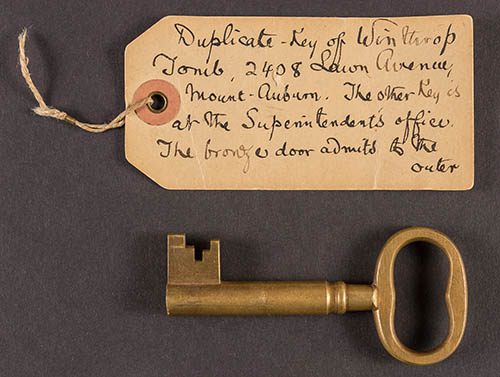 Duplicate-Key of Winthrop
Tomb, 2408 Lawn Avenue,
Mount-Auburn. The other Key is
at the Superintendent's office.
The bronze door admits to the
outer